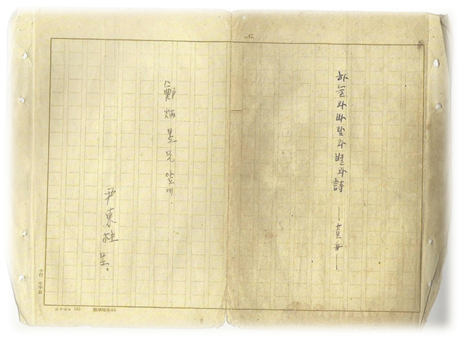 하늘과바람과별과詩
鄭炳昱兄앞에
尹東柱 呈.